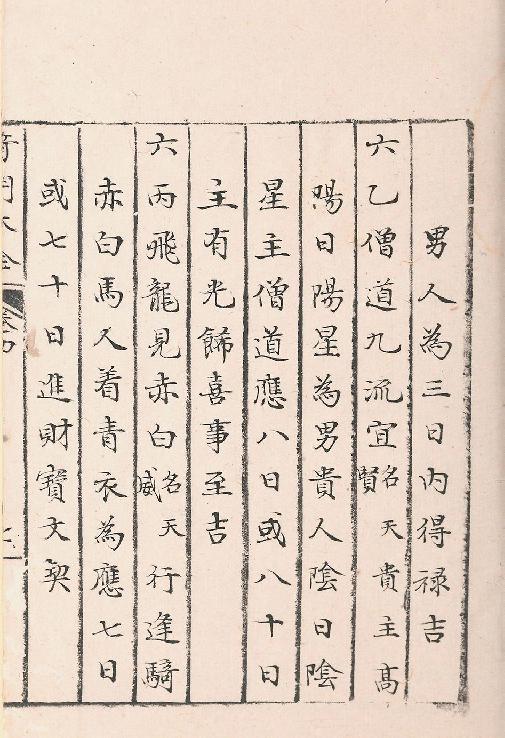 男人為三日內得祿吉
六乙僧道九流宜名天賢貴主高
陽日陽星為男貴人陰日陰
星主僧道應八日或八十日
主有光餙喜事至吉
六丙飛龍見赤白名天威行逢騎
赤白馬人着青衣為應七日
或七十日進財寶文契